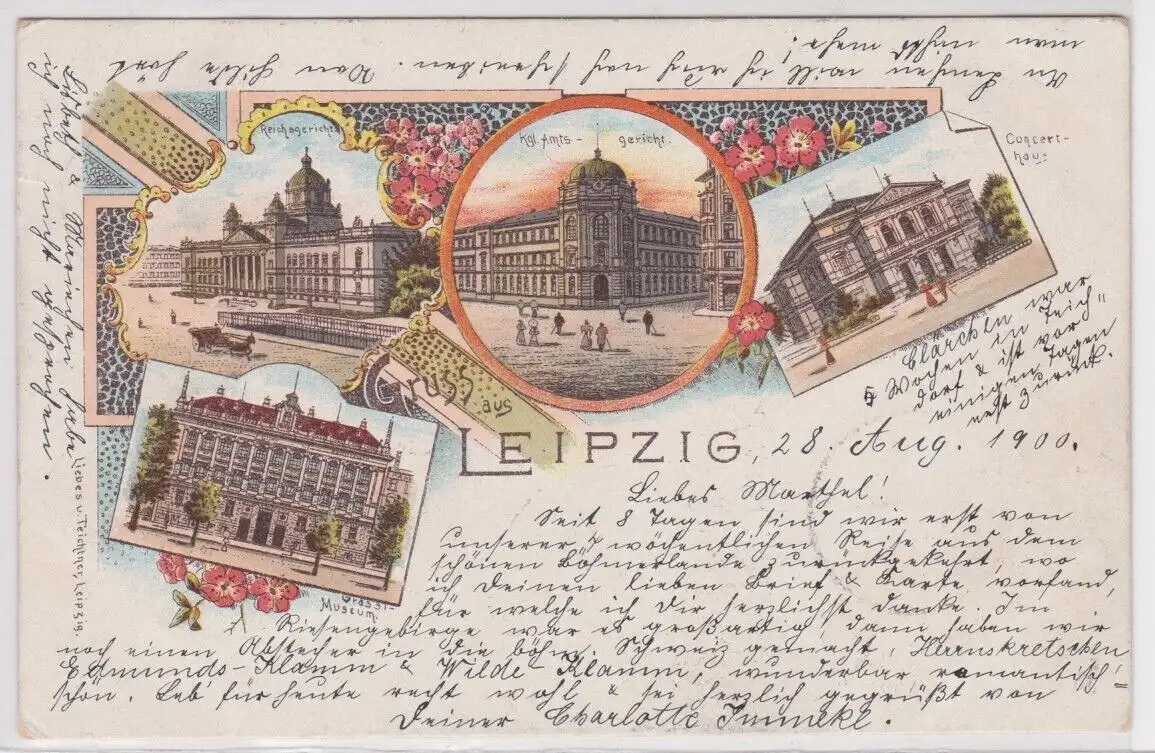 Reichsgericht
Kgl. Amts-gericht.
Concert-
haus
Gruss aus
LEIPZIG, 28. Aug. 1900.
Grassi-
Museum.
Liebes u. Teichtner, Leipzig.
Liebes Marthel!
Seit 8 Tagen sind wir erst von
unserer 7 wöchentlichen Reise aus dem
schönen Böhmerlande zurückgekehrt, wo
ich Deinen lieben Brief & Karte vorfand,
für welche ich Dir herzlichst danke. Im
Riesengebirge war es großartig, dann haben wir
noch einen Abstecher in die böhm. Schweiz gemacht, Herrnskretschen
Edmunds-Klamm & Wilde Klamm, wunderbar romantisch
schön. Leb für heute recht wohl & sei herzlich gegrüßt von
Deiner Charlotte
Clärchen war
5 Wochen in Teich=
dorf & ist vor
einigen Tagen
erst zurück.
An Lenchen will ich auch noch schreiben. Von Hilde hört
man nichts mehr!
& Mariechen habe
ich noch nicht gesehen.